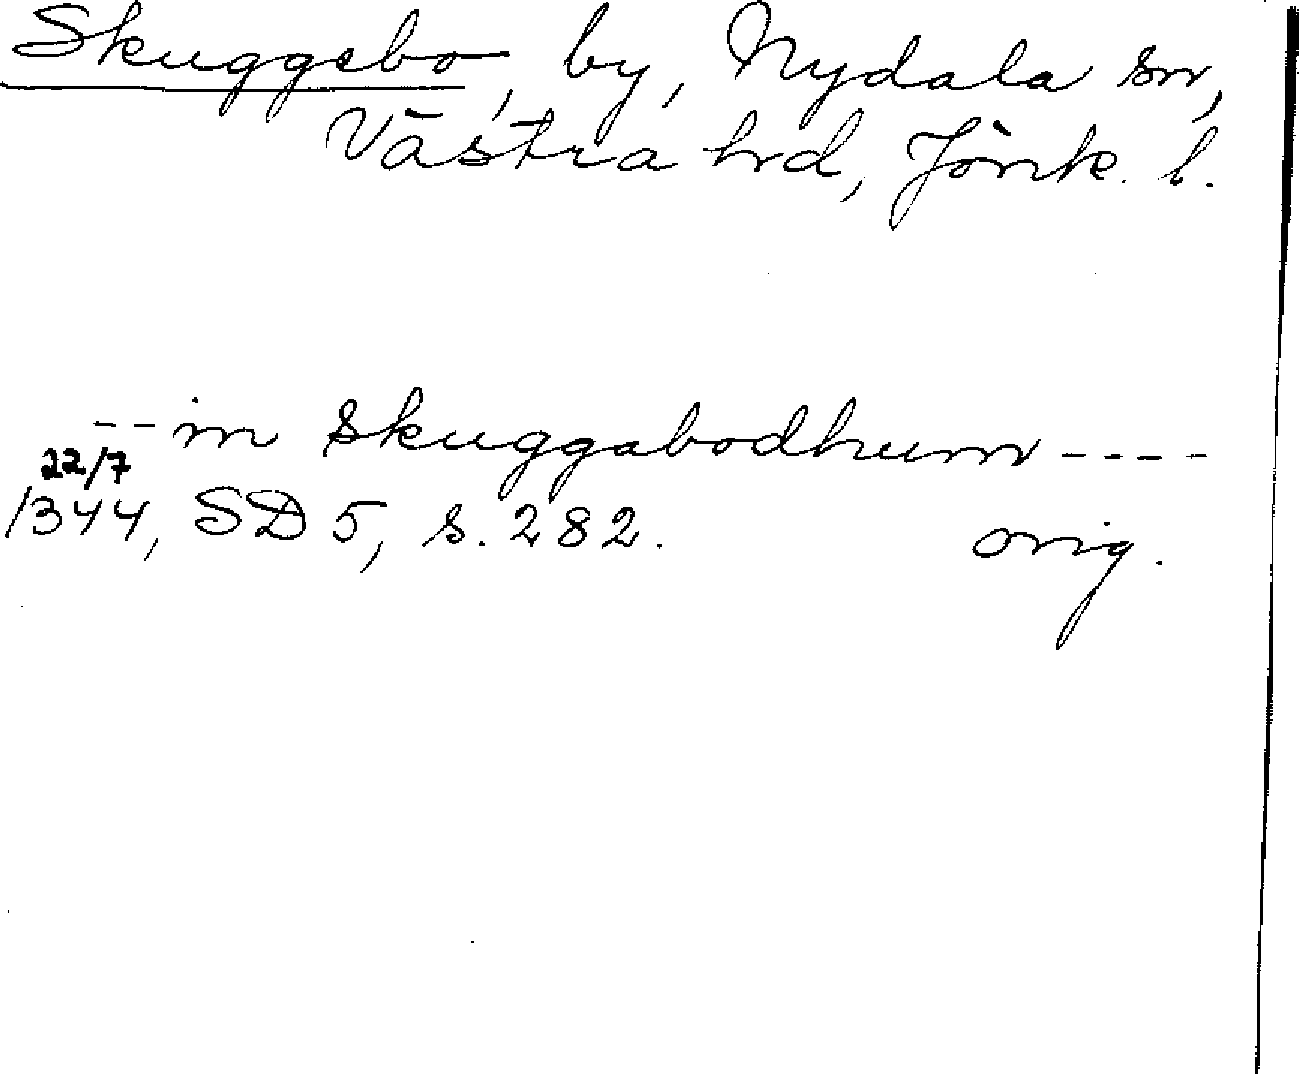 Skuggebo, by, Nydala sn,
Västra hrd, Jönk. l.
-- in skuggabodhum ----
22/7
1344, SD 5, s. 282. orig.